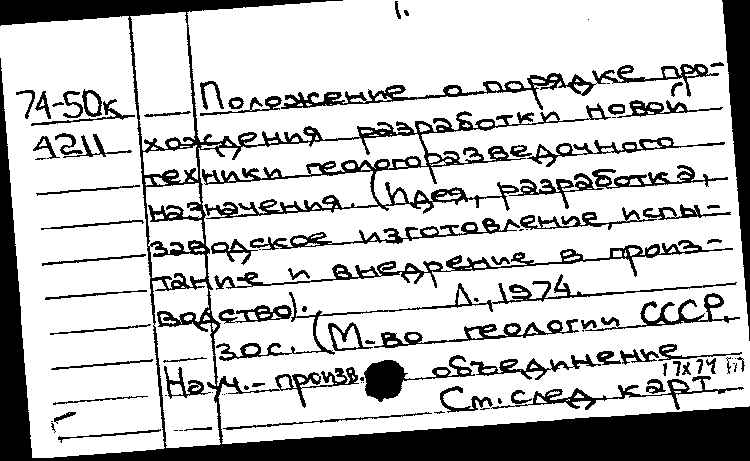 1.
74-50к Положение о порядке про-
4211 хождения разработки новой
техники геологоразведочного
назначения. (Идея, разработка,
заводское изготовление, испы-
тание и внедрение в произ-
водство). Л., 1974.
30с. (М-во геологии СССР.
Науч.-произв. объединение
17х74
См. след. карт.